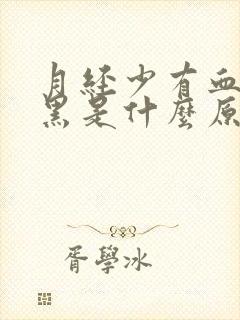 月經少有血
黑是什麼原
胥學冰